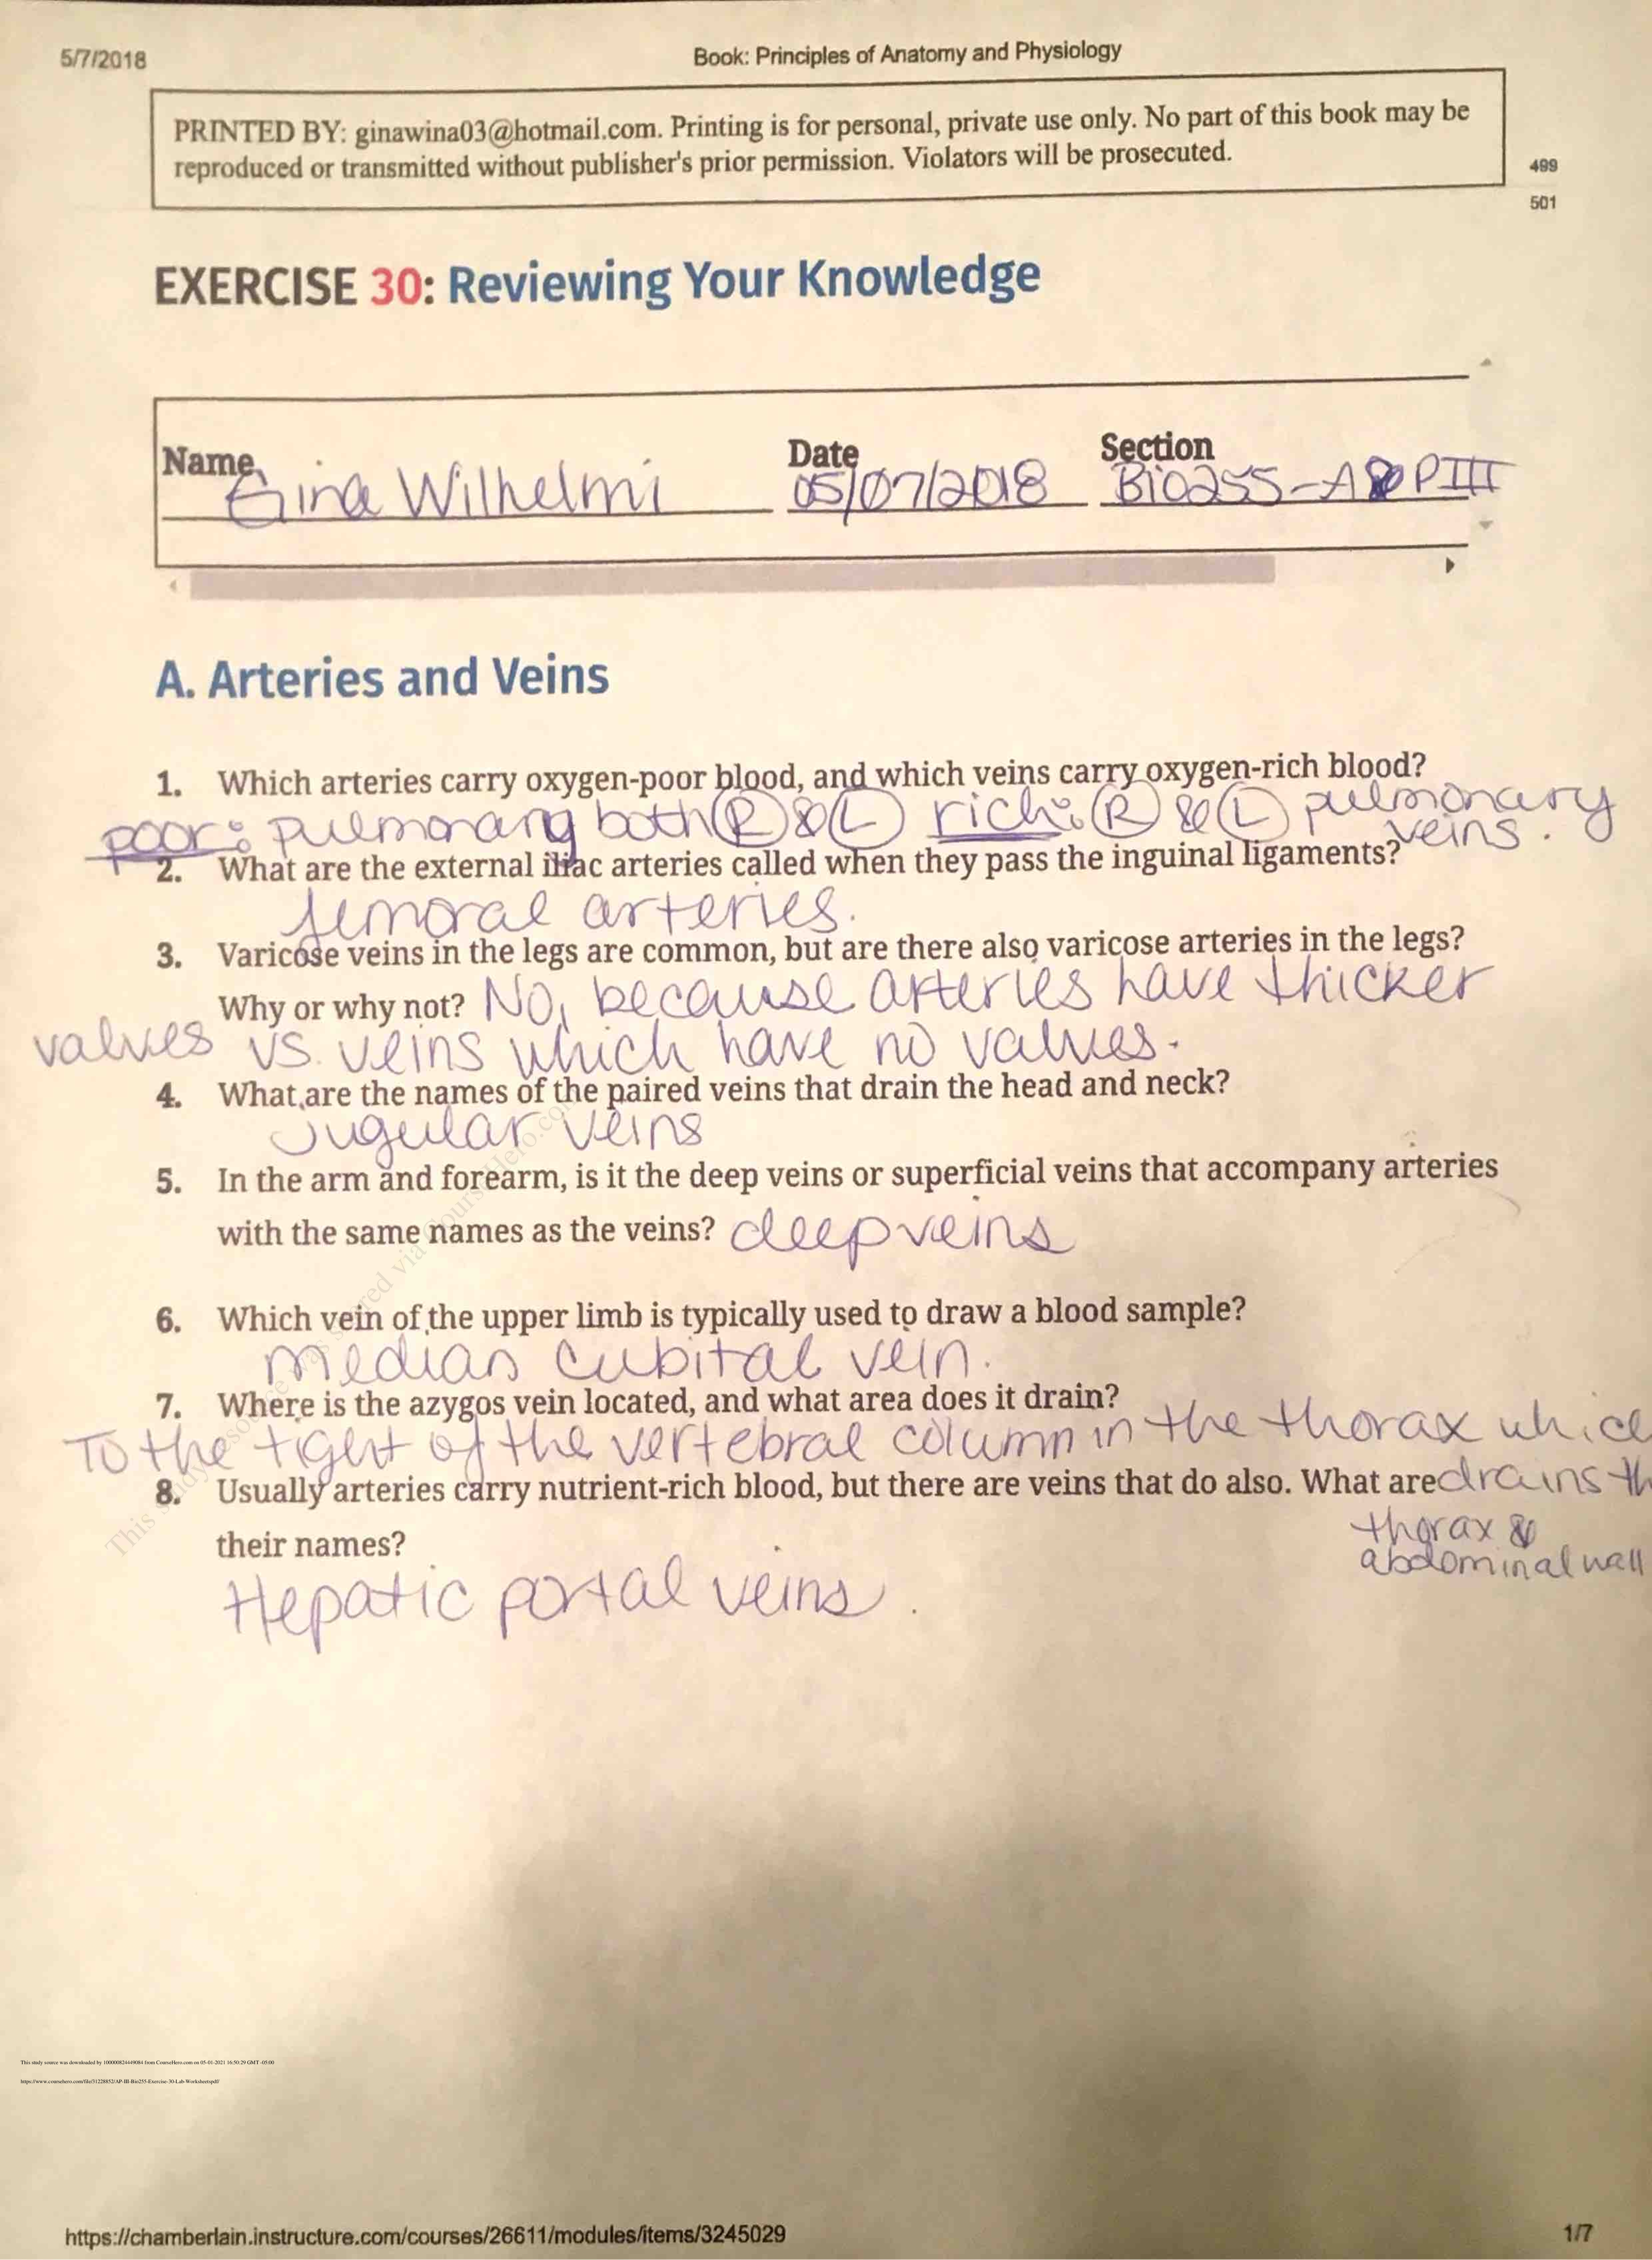 5/7/2018
Book: Principles of Anatomy and Physiology
PRINTED BY: ginawina03@hotmail.com. Printing is for personal, private use only. No part of this book may be
reproduced or transmitted without publisher's prior permission. Violators will be prosecuted.
499
501
EXERCISE 30: Reviewing Your Knowledge
Name Date Section
Gina Wilhelmi 05/07/2018 Bio255-A&PIII
A. Arteries and Veins
1. Which arteries carry oxygen-poor blood, and which veins carry oxygen-rich blood?
poor: pulmonary both R & L rich: R & L pulmonary
veins.
2. What are the external iliac arteries called when they pass the inguinal ligaments?
femoral arteries.
3. Varicose veins in the legs are common, but are there also varicose arteries in the legs?
Why or why not? No, because arteries have thicker
valves vs. veins which have no valves.
4. What are the names of the paired veins that drain the head and neck?
Jugular veins
5. In the arm and forearm, is it the deep veins or superficial veins that accompany arteries
with the same names as the veins? deep veins
6. Which vein of the upper limb is typically used to draw a blood sample?
median cubital vein.
7. Where is the azygos vein located, and what area does it drain?
To the right of the vertebral column in the thorax whic
drains th
thorax &
abdominal wall
8. Usually arteries carry nutrient-rich blood, but there are veins that do also. What are
their names?
Hepatic portal veins.
This study source was downloaded by 100000824449084 from CourseHero.com on 05-01-2021 16:50:29 GMT -05:00
https://chamberlain.instructure.com/courses/26611/modules/items/3245029
1/7